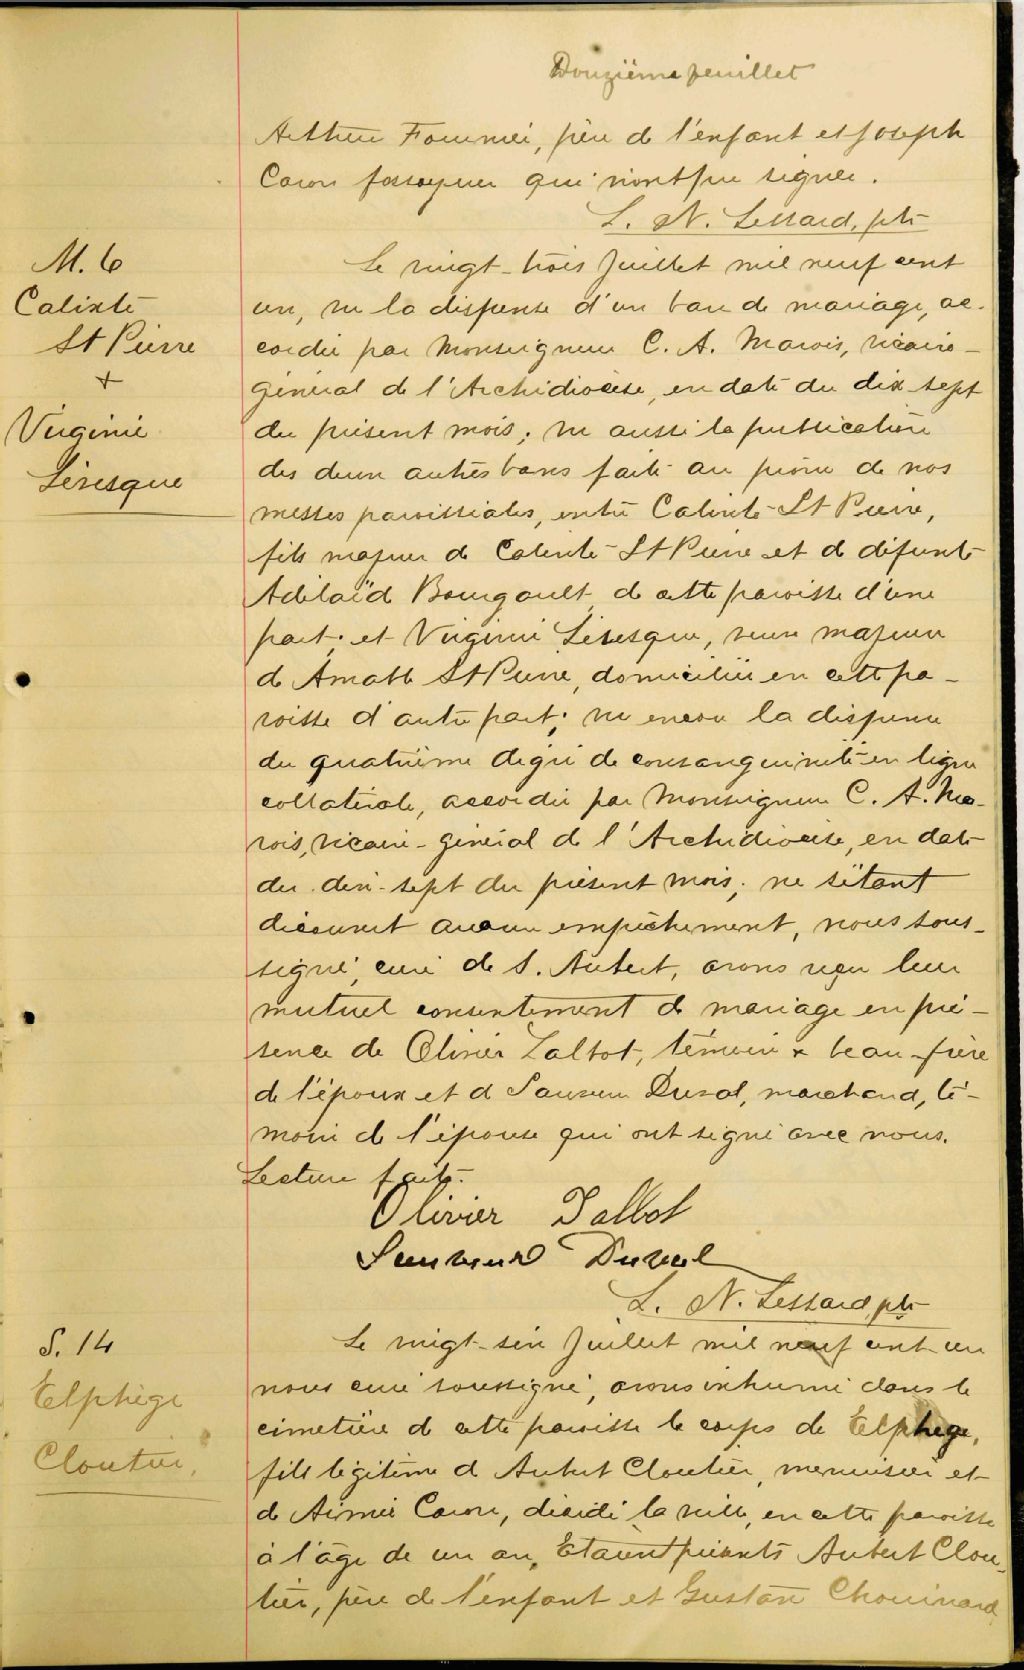 Douzième feuillet
Arthur Fournier, père de l'enfant et Joseph
Caron fossoyeur qui n'ont pu signer.
L. N. Lessard, ptr
M. 6
Calixte
St Pierre
+
Virginie
Lévesque
Le vingt-trois Juillet mil neuf cent
un, vu la dispense d'un ban de mariage, ac-
cordée par Monseigneur C. A. Marois, vicaire-
général de l'Archidiocèse, en date du dix sept
du présent mois; vu aussi la publication
des deux autres bans faite au prône de nos
messes paroissiales, entre Calixte St Pierre,
fils majeur de Calixte St Pierre et de défunte
Adélaïde Bourgault, de cette paroisse d'une
part; et Virginie Lévesque, veuve majeure
de Amable St Pierre, domiciliée en cette pa-
roisse d'autre part; vu encore la dispense
du quatrième degré de consanguinité en ligne
collatérale, accordée par Monseigneur C. A. Ma-
rois, vicaire-général de l'Archidiocèse, en date
du dix-sept du présent mois; ne s'étant
découvert aucun empêchement, nous sous-
signé, curé de S. Aubert, avons reçu leur
mutuel consentement de mariage en pré-
sence de Olivier Talbot, témoin & beau-frère
de l'époux et de Sauveur Duval, marchand, té-
moin de l'épouse qui ont signé avec nous.
Lecture faite.
Olivier Talbot
Sauveur Duval
L. N. Lessard, ptr
S. 14
Elphège
Cloutier,
Le vingt-six Juillet mil neuf cent un
nous curé soussigné, avons inhumé dans le
cimetière de cette paroisse le corps de Elphège,
fils légitime de Aubert Cloutier, menuisier et
de Aimée Caron, décédé la veille, en cette paroisse
à l'âge de un an. Etaient présents Aubert Clou-
tier, père de l'enfant et Gustave Chouinard